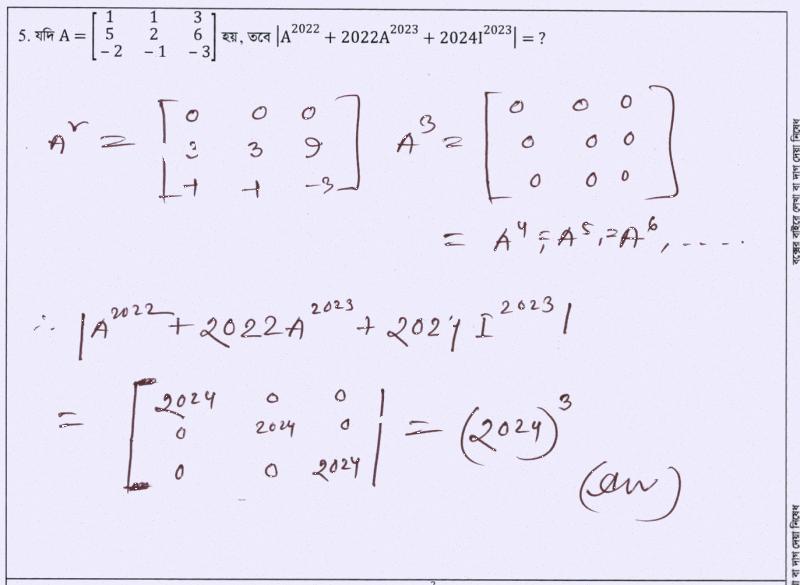 5. যদি A = [1 1 3
5 2 6
-2 -1 -3] হয়, তবে |A^2022 + 2022A^2023 + 2024I^2023| = ?
A^2 = [0 0 0
3 3 9
-1 -1 -3] A^3 = [0 0 0
0 0 0
0 0 0]
= A^4 = A^5, = A^6, .....
∴ |A^2022 + 2022A^2023 + 2024 I^2023|
= [2024 0 0
0 2024 0
0 0 2024| = (2024)^3
(an)
বক্সের বাইরে লেখা বা দাগ দেয়া নিষেধ
বা দাগ দেয়া নিষেধ